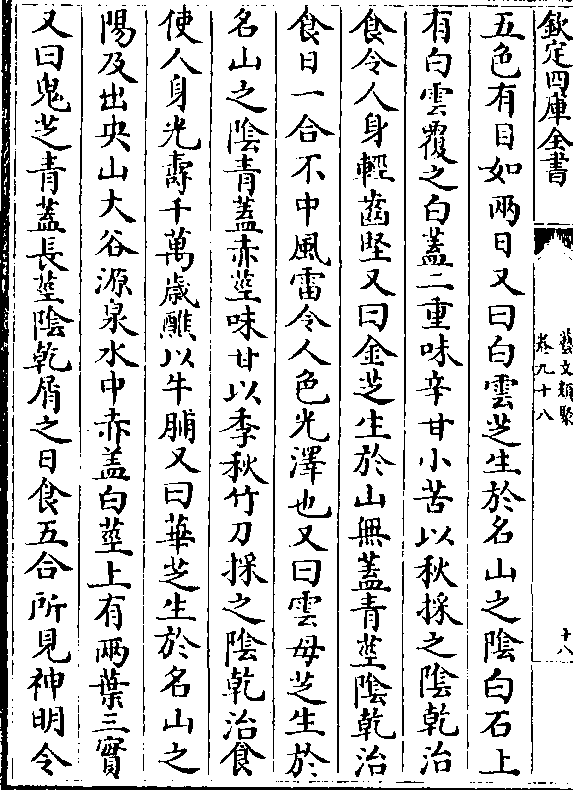 欽定四庫全書
藝文類聚
卷九十八
十八
五色有目如兩日又曰白雲芝生於名山之陰白石上
有白雲覆之白蓋二重味辛甘小苦以秋採之陰乾治
食令人身輕齒堅又曰金芝生於山無蓋青莖陰乾治
食日一合不中風雷令人色光澤也又曰雲母芝生於
名山之陰青蓋赤莖味甘以季秋竹刀採之陰乾治食
使人身光壽千萬歲醮以牛脯又曰華芝生於名山之
陽及出央山大谷源泉水中赤盖白莖上有兩葉三實
又曰鬼芝青蓋長莖陰乾屑之日食五合所見神明令